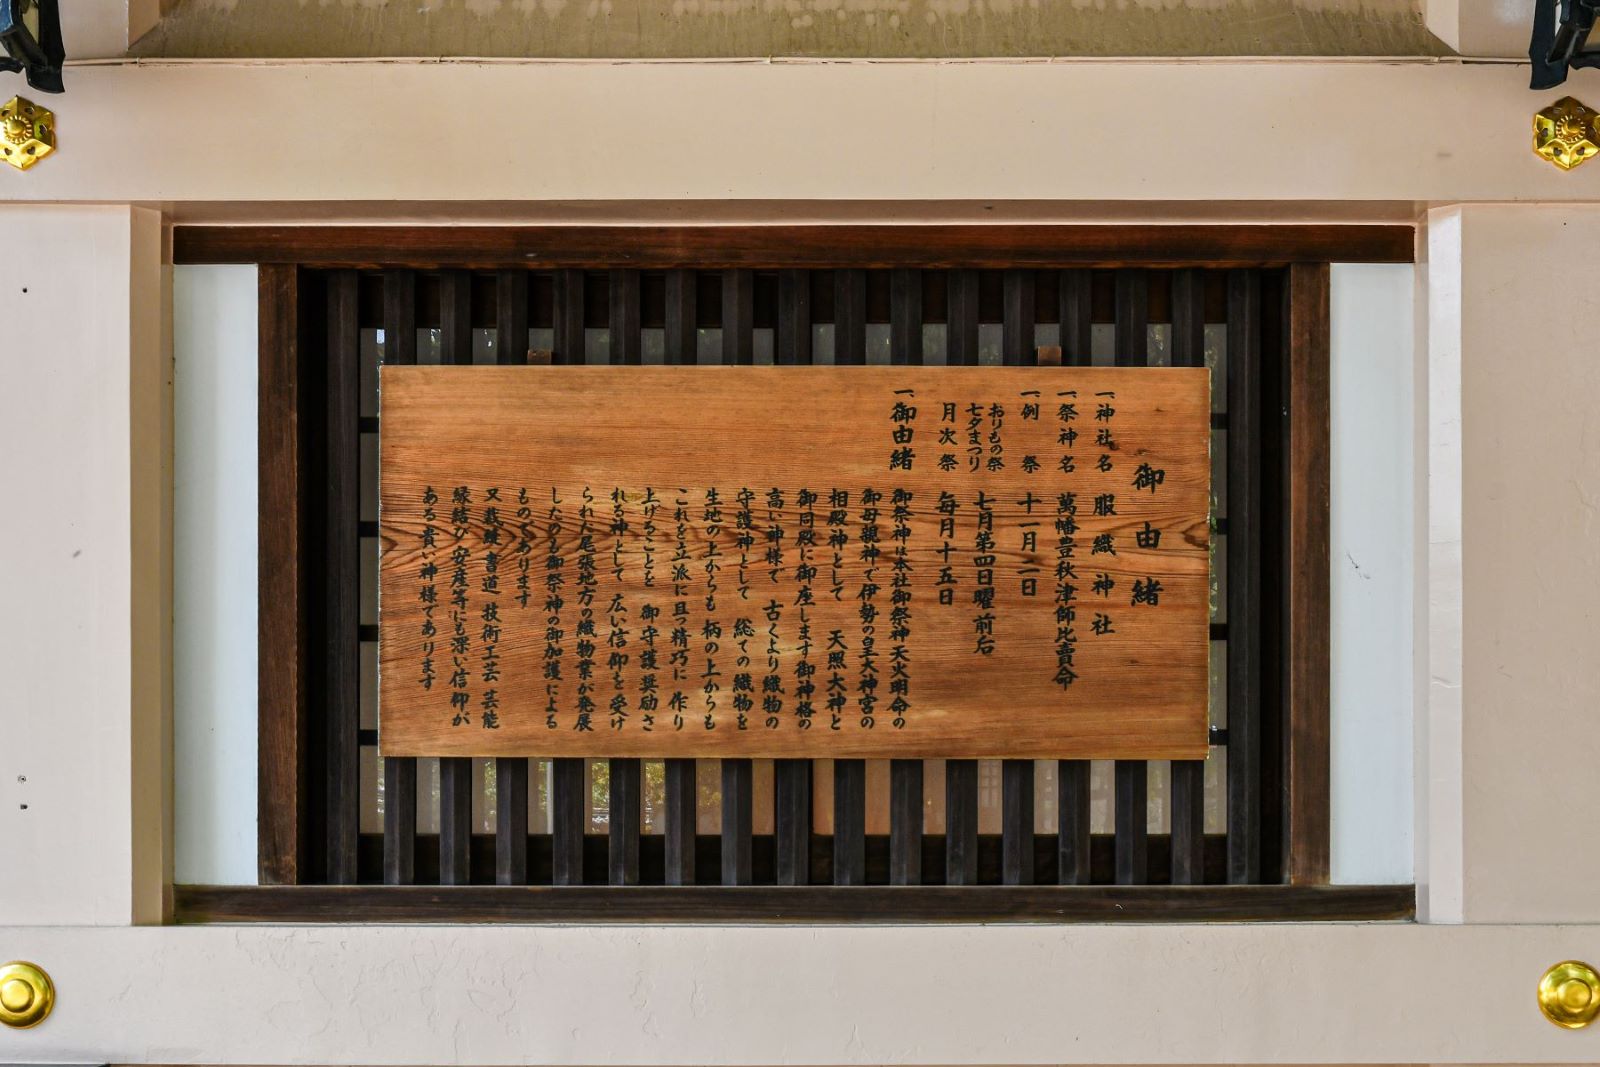 御由緒
一、神社名 服織神社
一、祭神名 萬幡豊秋津師比賣命
一、例祭 十一月二日
おりもの祭
七夕まつり 七月第四日曜前后
月次祭 毎月十五日
一、御由緒 御祭神は本社御祭神天火明命の
御母親神で伊勢の皇大神宮の
相殿神として 天照大神と
御同殿に御座します御神格の
高い神様で 古くより織物の
守護神として 総ての織物を
生地の上からも 柄の上からも
これを立派に且つ精巧に 作り
上げることを 御守護奨励さ
れる神として 広い信仰を受け
られた尾張地方の織物業が発展
したのも御祭神の御加護による
ものであります
又 裁縫 書道 技術工芸 芸能
縁結び 安産等にも深い信仰が
ある貴い神様であります